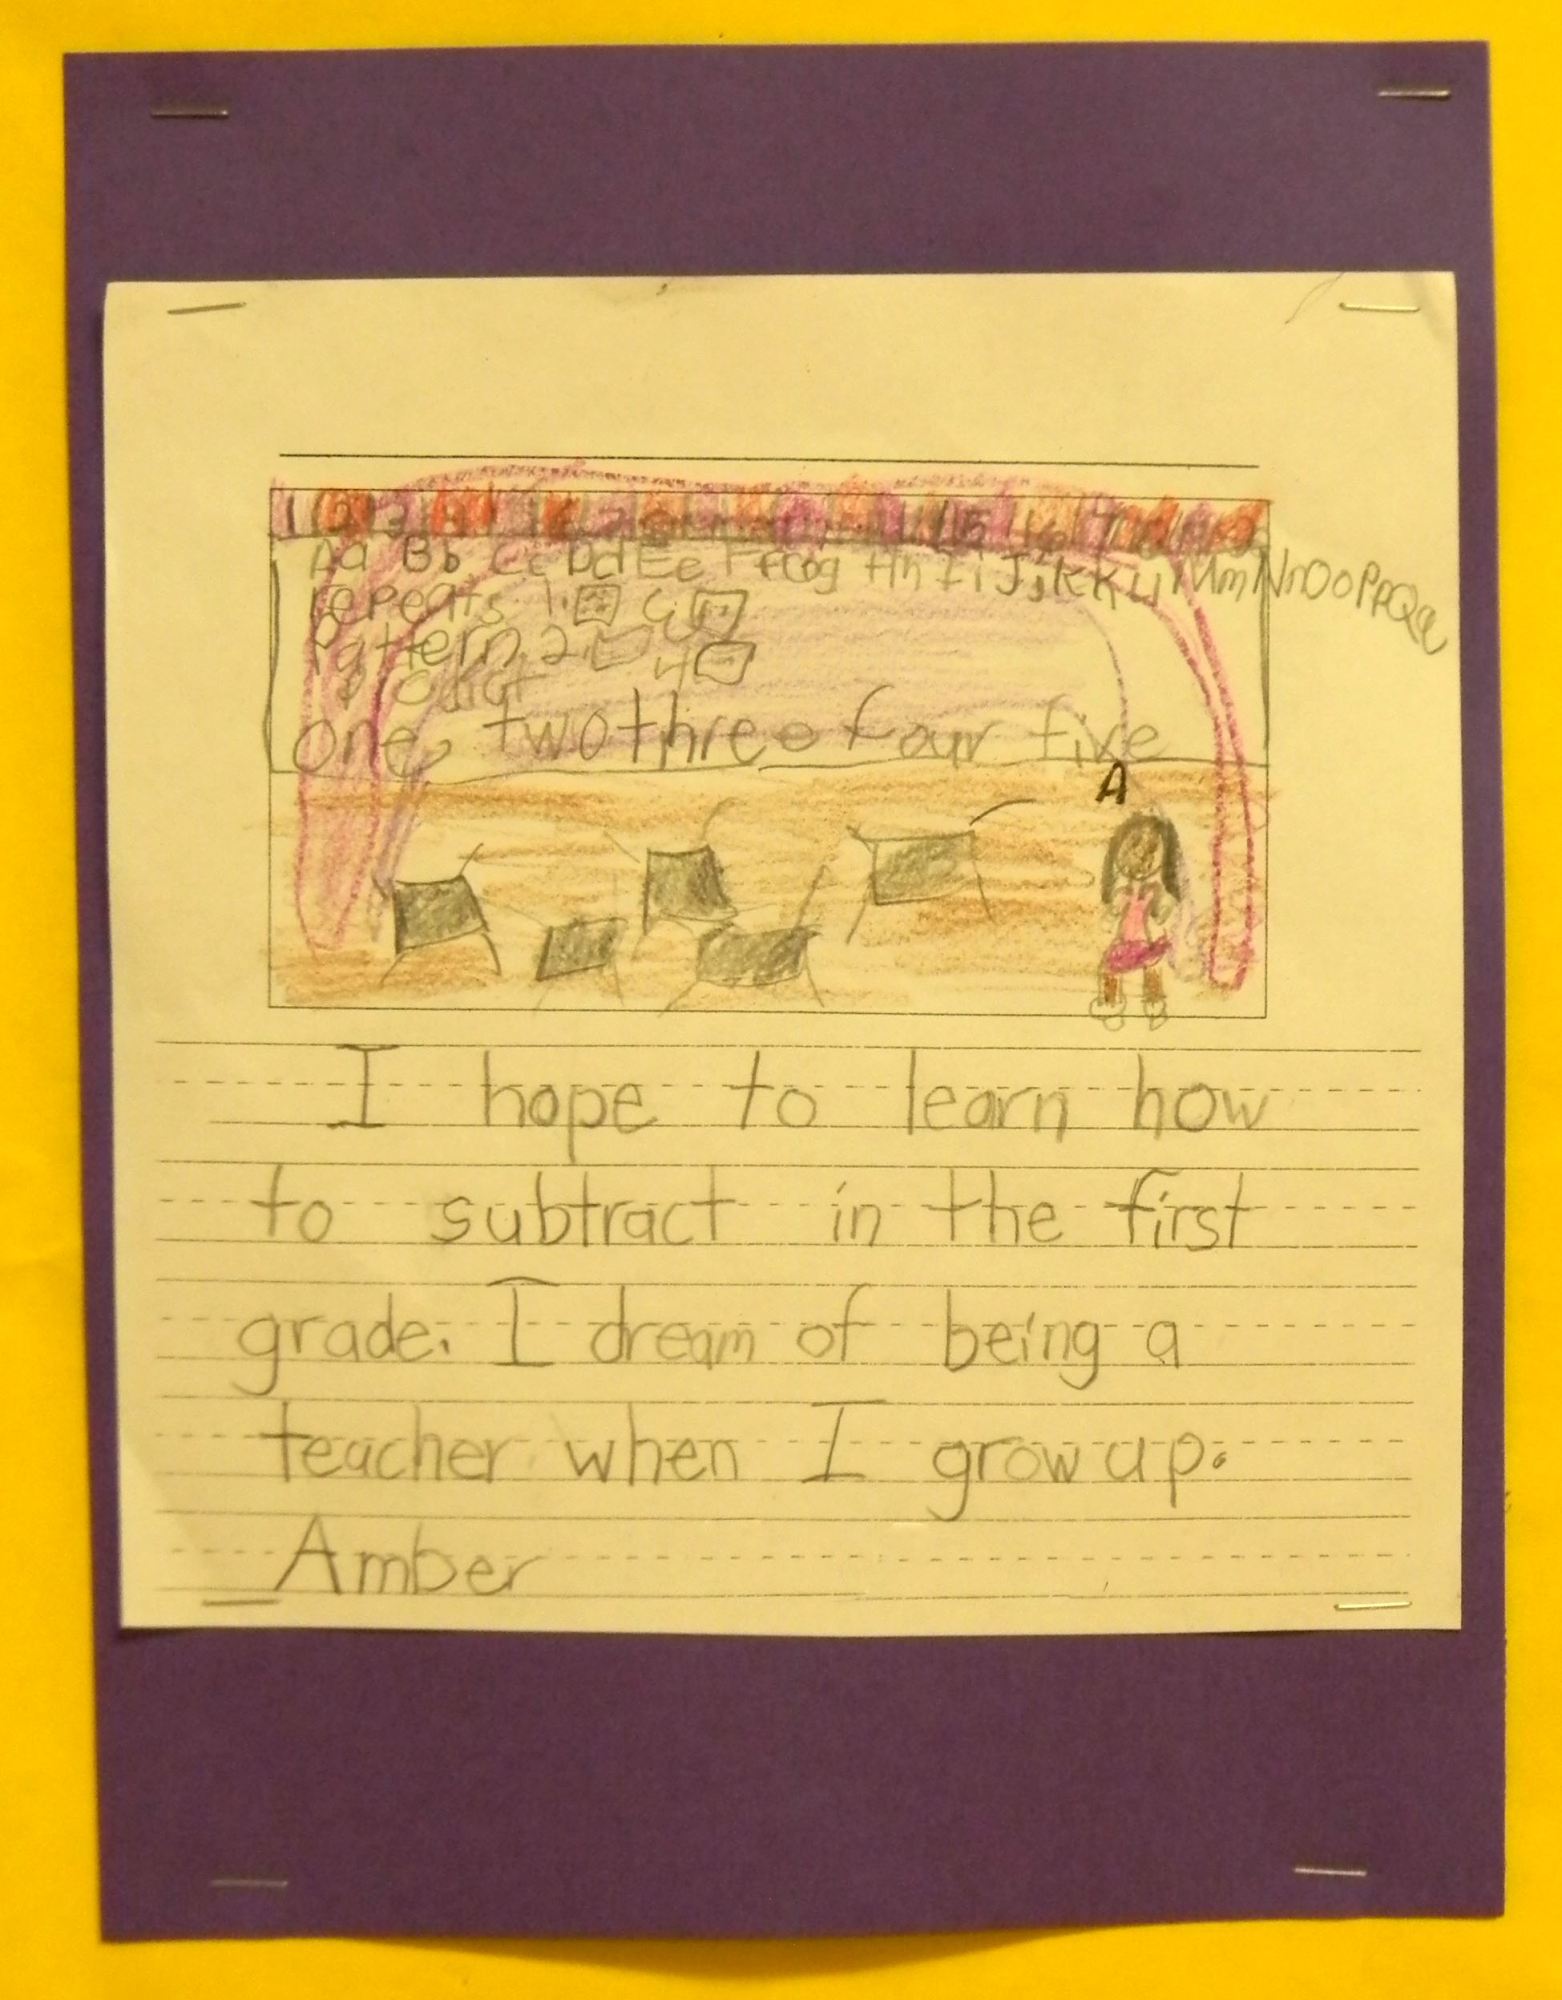 1 2 3 4
Aa Bb Cc Dd Ee Ff Gg Hh Ii Jj Kk Ll Mm Nn Oo Pp Qq
repeats 1.
Pattern 2
4
one, two three four five
A
I hope to learn how
to subtract in the first
grade. I dream of being a
teacher when I grow up.
Amber